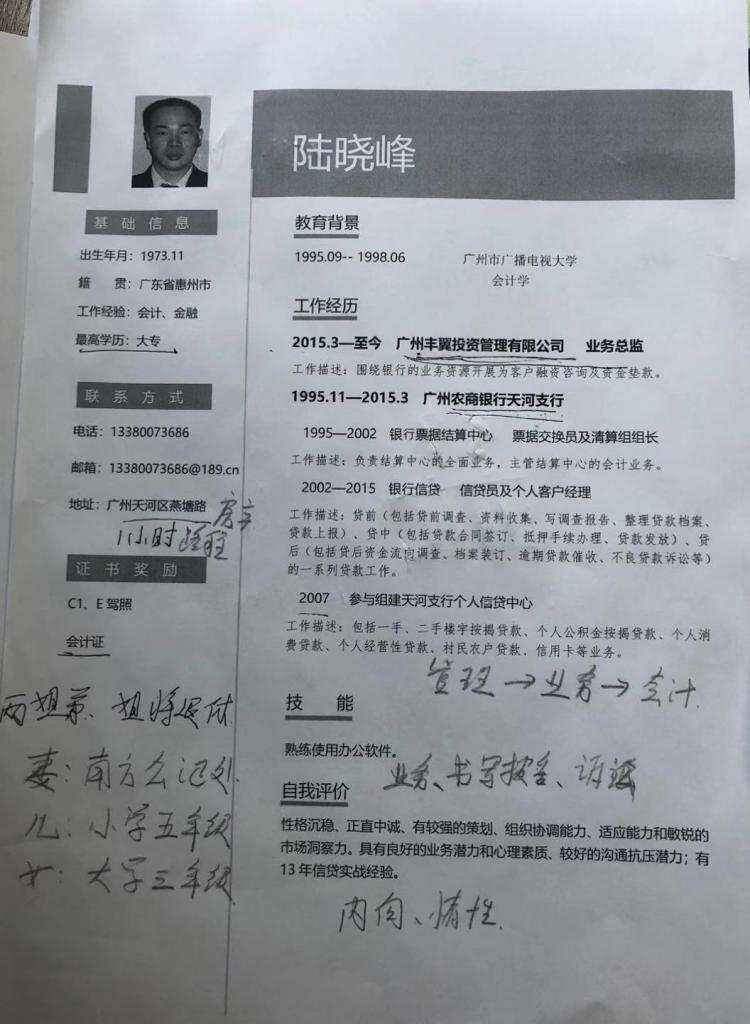 陆晓峰
基础信息
出生年月：1973.11
籍 贯：广东省惠州市
工作经验：会计、金融
最高学历：大专
联系方式
电话：13380073686
邮箱：13380073686@189.cn
地址：广州天河区燕塘路
1小时路程
证书奖励
C1、E 驾照
会计证
两姐弟、姐将退休
妻：南方公证处
儿：小学五年级
女：大学三年级
教育背景
1995.09-- 1998.06 广州市广播电视大学
会计学
工作经历
2015.3—至今 广州丰翼投资管理有限公司 业务总监
工作描述：围绕银行的业务资源开展为客户融资咨询及资金垫款。
1995.11—2015.3 广州农商银行天河支行
1995—2002 银行票据结算中心 票据交换员及清算组组长
工作描述：负责结算中心的全面业务，主管结算中心的会计业务。
2002—2015 银行信贷 信贷员及个人客户经理
工作描述：贷前（包括贷前调查、资料收集、写调查报告、整理贷款档案、
贷款上报）、贷中（包括贷款合同签订、抵押手续办理、贷款发放）、贷
后（包括贷后资金流向调查、档案装订、逾期贷款催收、不良贷款诉讼等）
的一系列贷款工作。
2007 参与组建天河支行个人信贷中心
工作描述：包括一手、二手楼宇按揭贷款、个人公积金按揭贷款、个人消
费贷款、个人经营性贷款、村民农户贷款、信用卡等业务。
管理→业务→会计
技 能
熟练使用办公软件。
业务、书写报告、诉讼
自我评价
性格沉稳、正直中诚、有较强的策划、组织协调能力、适应能力和敏锐的
市场洞察力。具有良好的业务潜力和心理素质、较好的沟通抗压潜力；有
13 年信贷实战经验。
内向、惰性